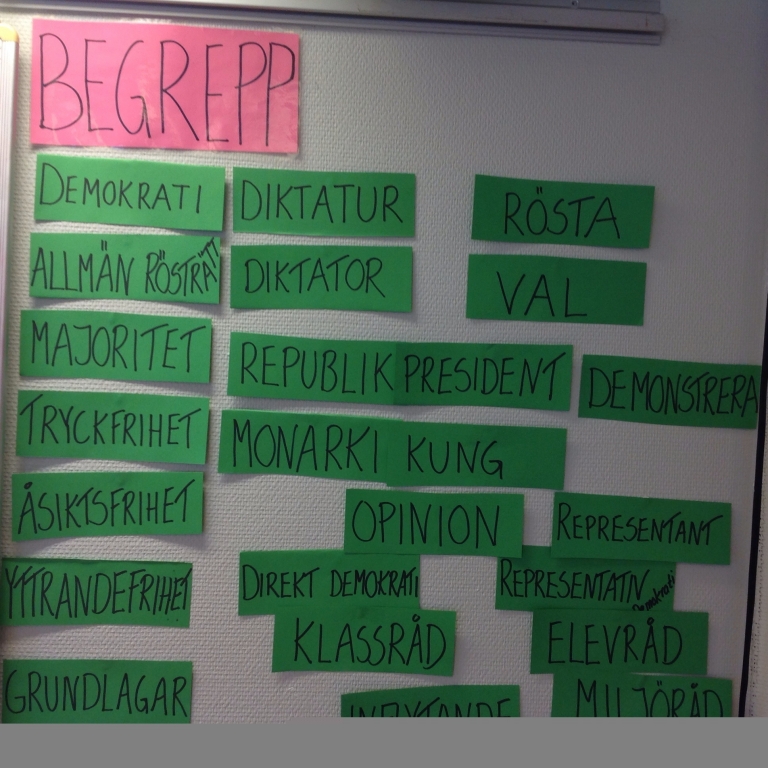 BEGREPP
DEMOKRATI DIKTATUR RÖSTA
ALLMÄN RÖSTRÄTT DIKTATOR VAL
MAJORITET REPUBLIK PRESIDENT DEMONSTRERA
TRYCKFRIHET MONARKI KUNG
ÅSIKTSFRIHET OPINION REPRESENTANT
YTTRANDEFRIHET DIREKT DEMOKRATI REPRESENTATIV Demokrati
KLASSRÅD ELEVRÅD
GRUNDLAGAR INFLYTANDE MILJÖRÅD